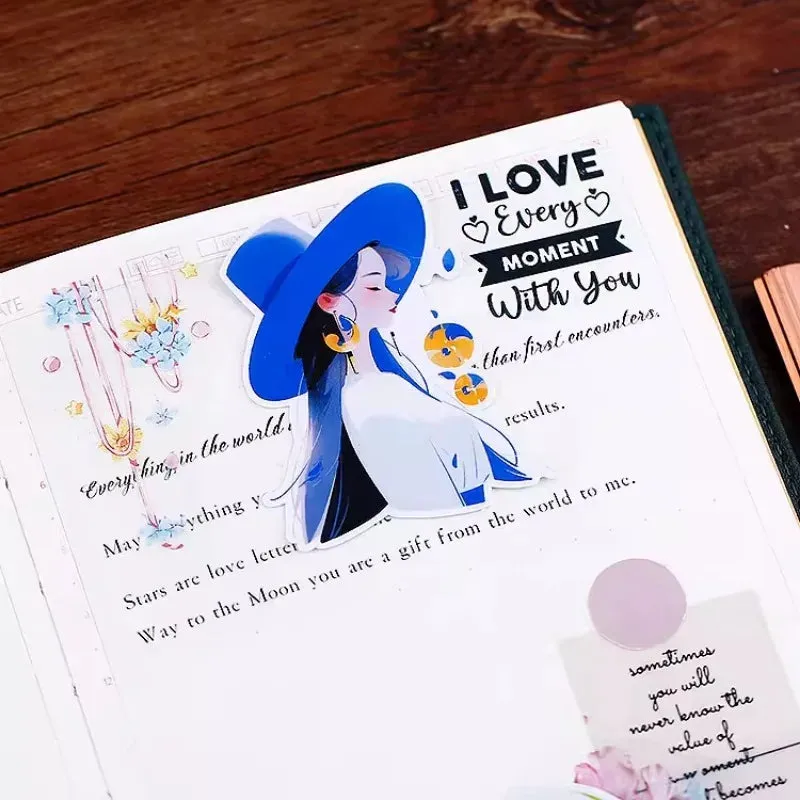 I LOVE
Every
MOMENT
With You
than first encounters.
Everything in the world
results.
May
Stars are love letter
Way to the Moon you are a gift from the world to me.
sometimes
you will
never know the
value of
moment
becomes